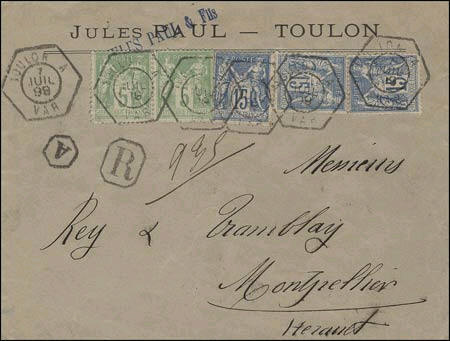 JULES PAUL — TOULON
JULES PAUL & Fils
TOULON A
JUIL
98
VAR
5
5
15
15
15
A
R
935
Messieurs
Rey & Tramblay
Montpellier
Herault